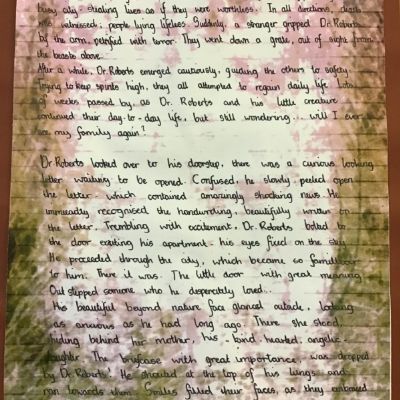 busy city - stealing lives as if they were worthless. In all directions, death
was witnessed; people lying lifeless. Suddenly, a stranger gripped Dr. Roberts
by the arm, petrified with terror. They went down a grate, out of sight from
the beasts above.
After a while, Dr. Roberts emerged cautiously, guiding the others to safety.
Trying to keep spirits high, they all attempted to regain daily life. Lots
of weeks passed by, as Dr. Roberts and his little creature
continued their day-to-day life, but still wondering... will I ever
see my family again?
Dr Roberts looked over to his doorstep, there was a curious looking
letter waiting to be opened. Confused, he slowly, peeled open
the letter - which contained amazingly shocking news. He
immediately recognised the handwriting, beautifully written on
the letter. Trembling with excitement, Dr. Roberts bolted to
the door exiting his apartment, his eyes fixed on the sky.
He proceeded through the city, which became so familiar
to him. There it was. The little door with great meaning.
Out stepped someone who he desperately loved...
His beautiful beyond nature face glanced outside, looking
as anxious as he had long ago. There she stood,
hiding behind her mother, his kind hearted, angelic
daughter. The briefcase with great importance, was dropped
by Dr. Roberts! He shouted at the top of his lungs and
ran towards them. Smiles filled their faces, as they embraced